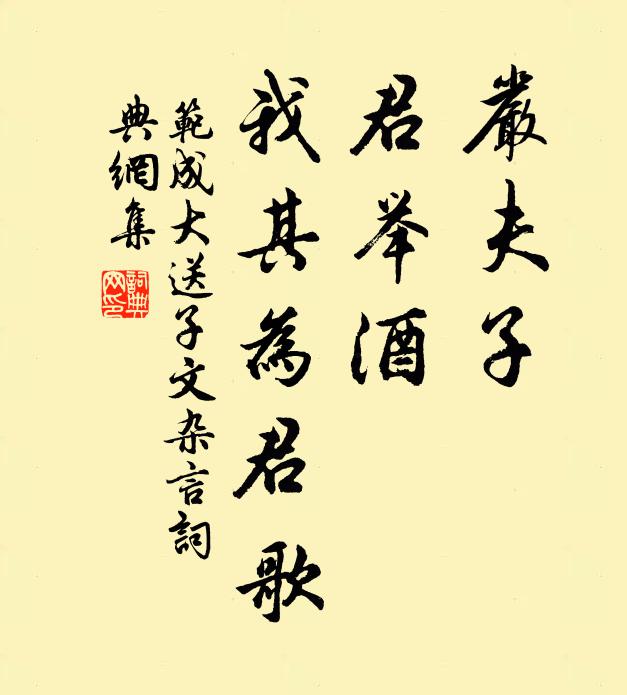 嚴夫子
君举酒
我其為君歌
範成大送子文杂言詞
典網集
詞典
网印